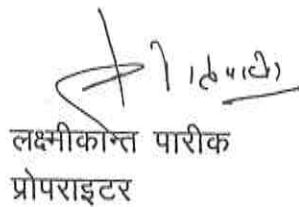 लक्ष्मीकान्त पारीक
प्रोपराइटर